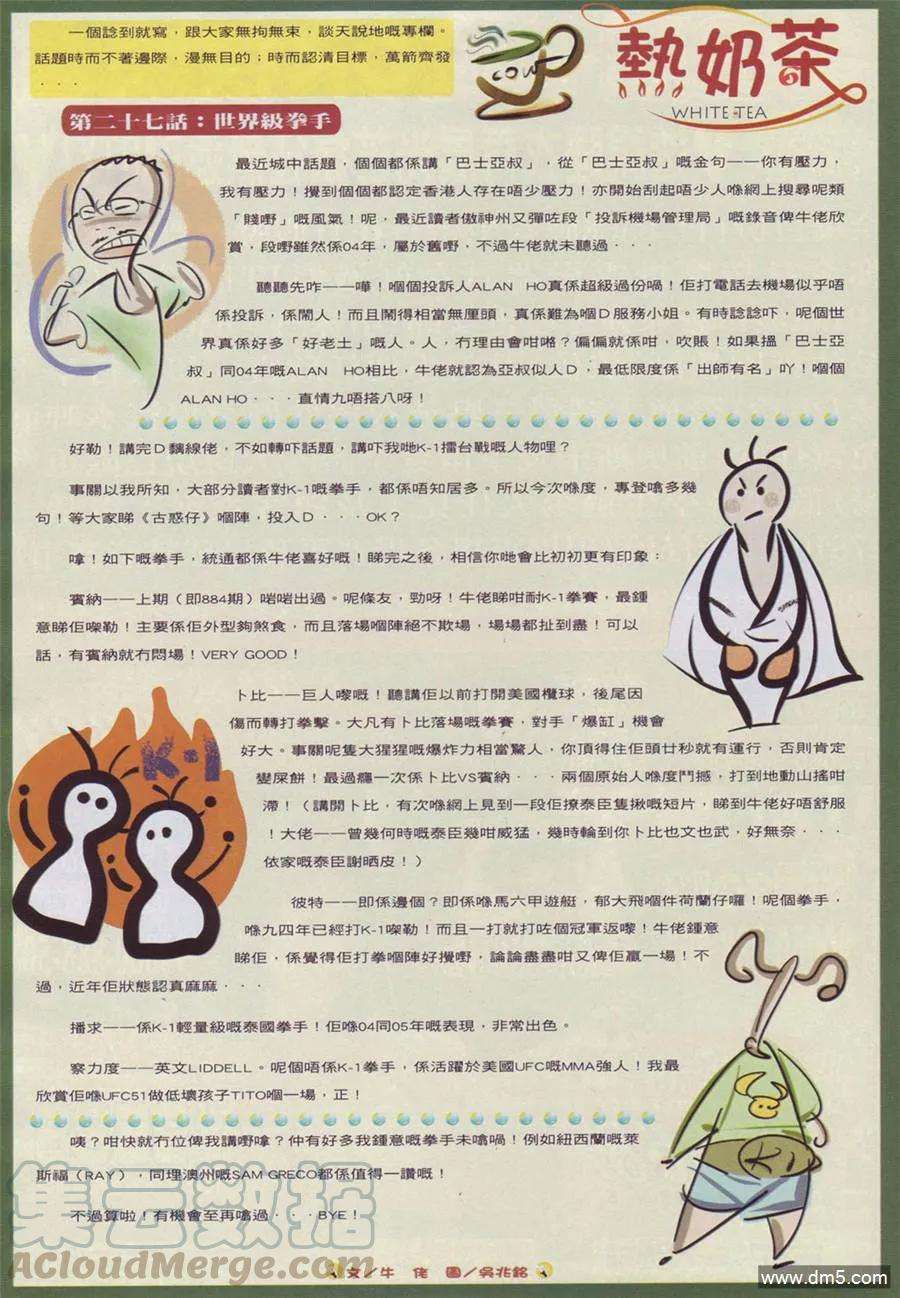 一個諗到就寫,跟大家無拘無束,談天說地嘅專欄。
話題時而不著邊際,漫無目的;時而認清目標,萬箭齊發
· · ·
COW
熱奶茶
WHITE TEA
第二十七話:世界級拳手
最近城中話題,個個都係講「巴士亞叔」,從「巴士亞叔」嘅金句——你有壓力,
我有壓力!攪到個個都認定香港人存在唔少壓力!亦開始刮起唔少人喺網上搜尋呢類
「賤嘢」嘅風氣!呢,最近讀者傲神州又彈咗段「投訴機場管理局」嘅錄音俾牛佬欣
賞,段嘢雖然係04年,屬於舊嘢,不過牛佬就未聽過···
聽聽先咋——嘩!嗰個投訴人ALAN HO真係超級過份喎!佢打電話去機場似乎唔
係投訴,係鬧人!而且鬧得相當無厘頭,真係難為嗰D服務小姐。有時諗諗吓,呢個世
界真係好多「好老土」嘅人。人,冇理由會咁嘅?偏偏就係咁,吹脹!如果搵「巴士亞
叔」同04年嘅ALAN HO相比,牛佬就認為亞叔似人D,最低限度係「出師有名」吖!嗰個
ALAN HO···直情九唔搭八呀!
好勒!講完D黐線佬,不如轉吓話題,講吓我哋K-1擂台戰嘅人物哩?
事關以我所知,大部分讀者對K-1嘅拳手,都係唔知居多。所以今次喺度,專登噏多幾
句!等大家睇《古惑仔》嗰陣,投入D···OK?
嗱!如下嘅拳手,統通都係牛佬喜好嘅!睇完之後,相信你哋會比初初更有印象:
賓納——上期(即884期)啱啱出過。呢條友,勁呀!牛佬睇咁耐K-1拳賽,最鍾
意睇佢㗎勒!主要係佢外型夠煞食,而且落場嗰陣絕不欺場,場場都扯到盡!可以
話,有賓納就冇悶場!VERY GOOD!
卜比——巨人嚟嘅!聽講佢以前打開美國欖球,後尾因
傷而轉打拳擊。大凡有卜比落場嘅拳賽,對手「爆缸」機會
好大。事關呢隻大猩猩嘅爆炸力相當驚人,你頂得住佢頭廿秒就有運行,否則肯定
變屎餅!最過癮一次係卜比VS賓納···兩個原始人喺度鬥撼,打到地動山搖咁
滯!(講開卜比,有次喺網上見到一段佢撩泰臣隻揪嘅短片,睇到牛佬好唔舒服
!大佬——曾幾何時嘅泰臣幾咁威猛,幾時輪到你卜比也文也武,好無奈···
依家嘅泰臣謝晒皮!)
K-1
彼特——即係邊個?即係喺馬六甲遊艇,郁大飛嗰件荷蘭仔囉!呢個拳手,
喺九四年已經打K-1㗎勒!而且一打就打咗個冠軍返嚟!牛佬鍾意
睇佢,係覺得佢打拳嗰陣好攪嘢,論論盡盡咁又俾佢贏一場!不
過,近年佢狀態認真麻麻···
播求——係K-1輕量級嘅泰國拳手!佢喺04同05年嘅表現,非常出色。
察力度——英文LIDDELL。呢個唔係K-1拳手,係活躍於美國UFC嘅MMA強人!我最
欣賞佢喺UFC51做低壞孩子TITO嗰一場,正!
咦?咁快就冇位俾我講嘢嗱?仲有好多我鍾意嘅拳手未噏喎!例如紐西蘭嘅萊
斯福(RAY),同埋澳州嘅SAM GRECO都係值得一讚嘅!
不過算啦!有機會至再噏過···BYE!
K-1
文/牛 佬 圖/吳兆銘
集云数据
ACloudMerge.com
www.dm5.com